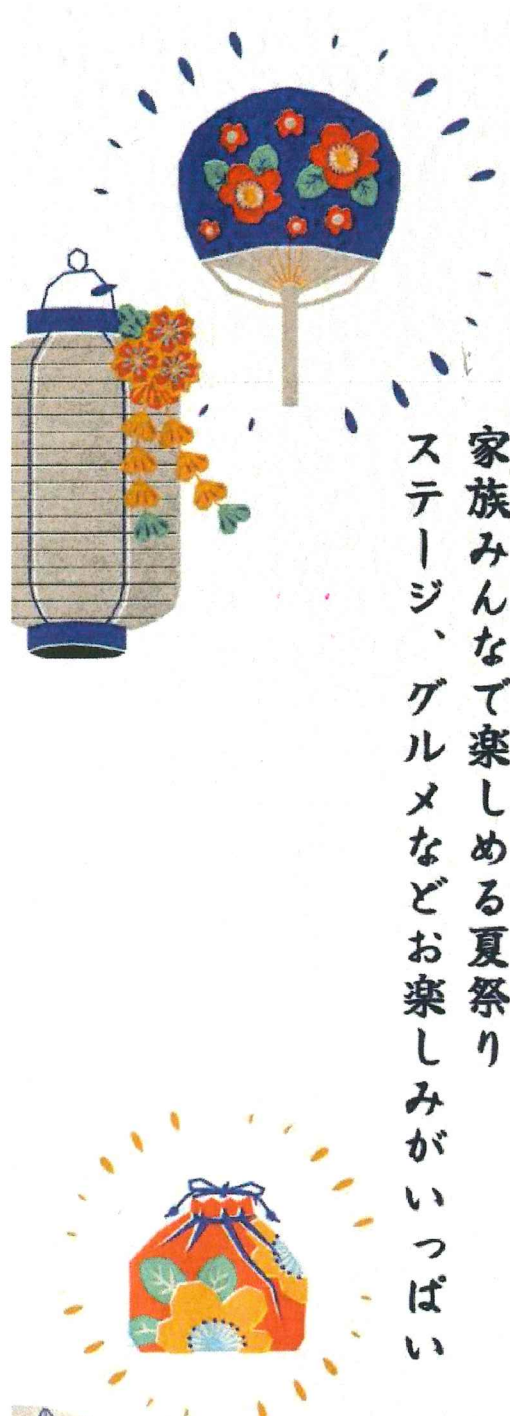 家族みんなで楽しめる夏祭り
ステージ、グルメなどお楽しみがいっぱい